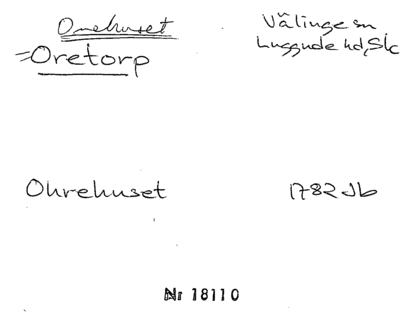 Orehuset
Välinge sn
=Oretorp
Luggude hd, Sk
Ohrehuset
1782 Jb
Nr 18110